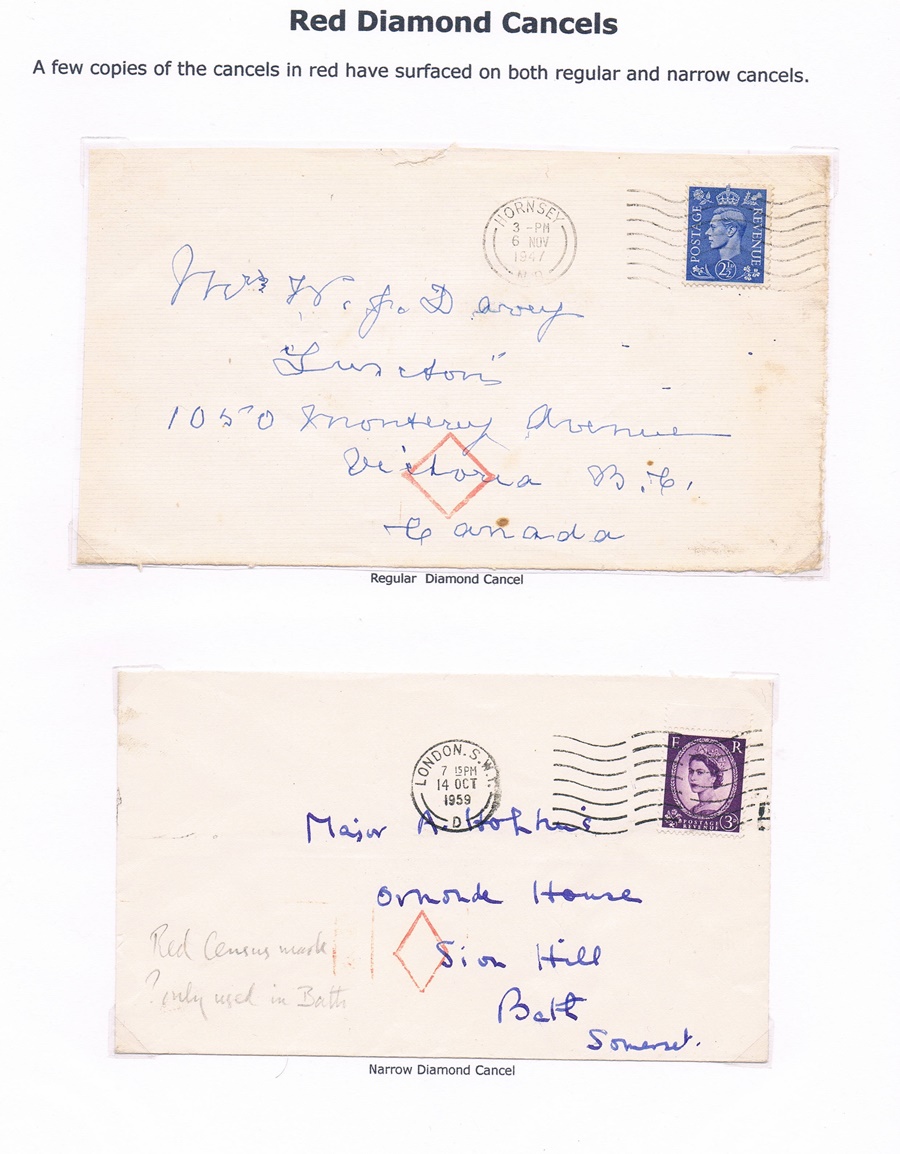 Red Diamond Cancels
A few copies of the cancels in red have surfaced on both regular and narrow cancels.
HORNSEY
3 - PM
6 NOV
1947
POSTAGE REVENUE
2½D
Mrs W. J. Davey
1050 Monterey Avenue
Victoria B.C.
Canada
Regular Diamond Cancel
LONDON. S.W.1.
7 15PM
14 OCT
1959
D
E R
POSTAGE
REVENUE
3D
Major A. Hopkins
Ormonde House
Sion Hill
Bath
Somerset.
Red Census mark
? only used in Bath
Narrow Diamond Cancel